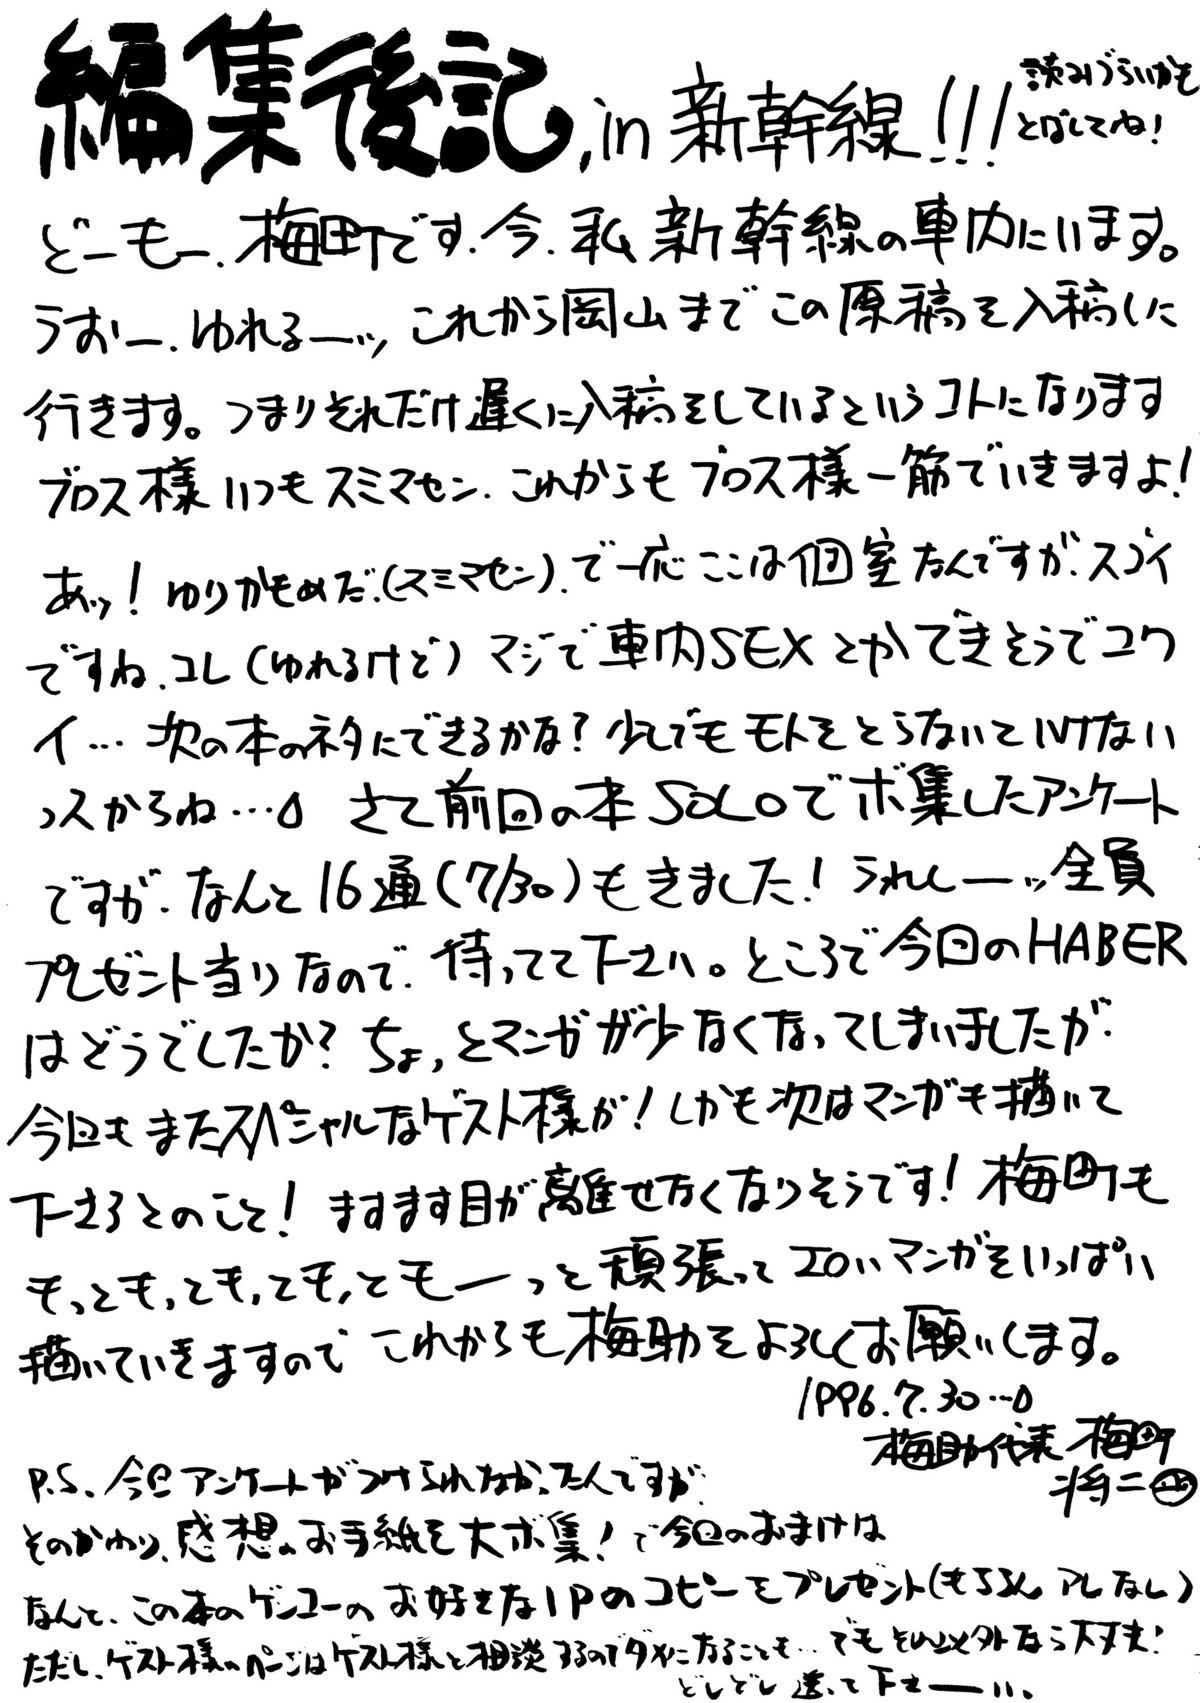 編集後記, in 新幹線!!!
読みづらいかも
とばしてね!
どーもー、梅町です。今、私新幹線の車内にいます。
うおー、ゆれるーッ これから岡山までこの原稿を入稿しに
行きます。つまりそれだけ遅くに入稿をしているというコトになります
ブロス様いつもスミマセン、これからもブロス様一筋でいきますよ!
あッ!ゆりかもめだ、(スミマセン)、で一応ここは個室なんですが、スゴイ
ですね、コレ(ゆれるけど) マジで車内SEXとかできそうでコワ
イ… 次の本のネタにできるかな? 少しでもモトをとらないといけない
っスからね…。 さて前回の本SOLOでボ集したアンケート
ですが、なんと16通(7/30)もきました! うれしーーッ全員
プレゼント当りなので、待ってて下さい。ところで今回のHABER
はどうでしたか? ちょっとマンガが少なくなってしまいましたが、
今回もまたスペシャルなゲスト様が!しかも次はマンガも描いて
下さるとのこと! ますます目が離せなくなりそうです! 梅町も
もっともっともっともっともーーっと頑張ってエロいマンガをいっぱい
描いていきますので これからも梅助をよろしくお願いします。
1996.7.30…。
梅助代表 梅町
将二
P.S. 今回アンケートがつけられなかったんですが、
そのかわり、感想のお手紙を大ボ集! で今回のおまけは
なんと、この本のゲンコーのお好きな1Pのコピーをプレゼント(もちろんアレなし)
ただし、ゲスト様のページはゲスト様と相談するのでダメになることも… でもそれ以外なら大丈夫!
どしどし送って下さーーい。